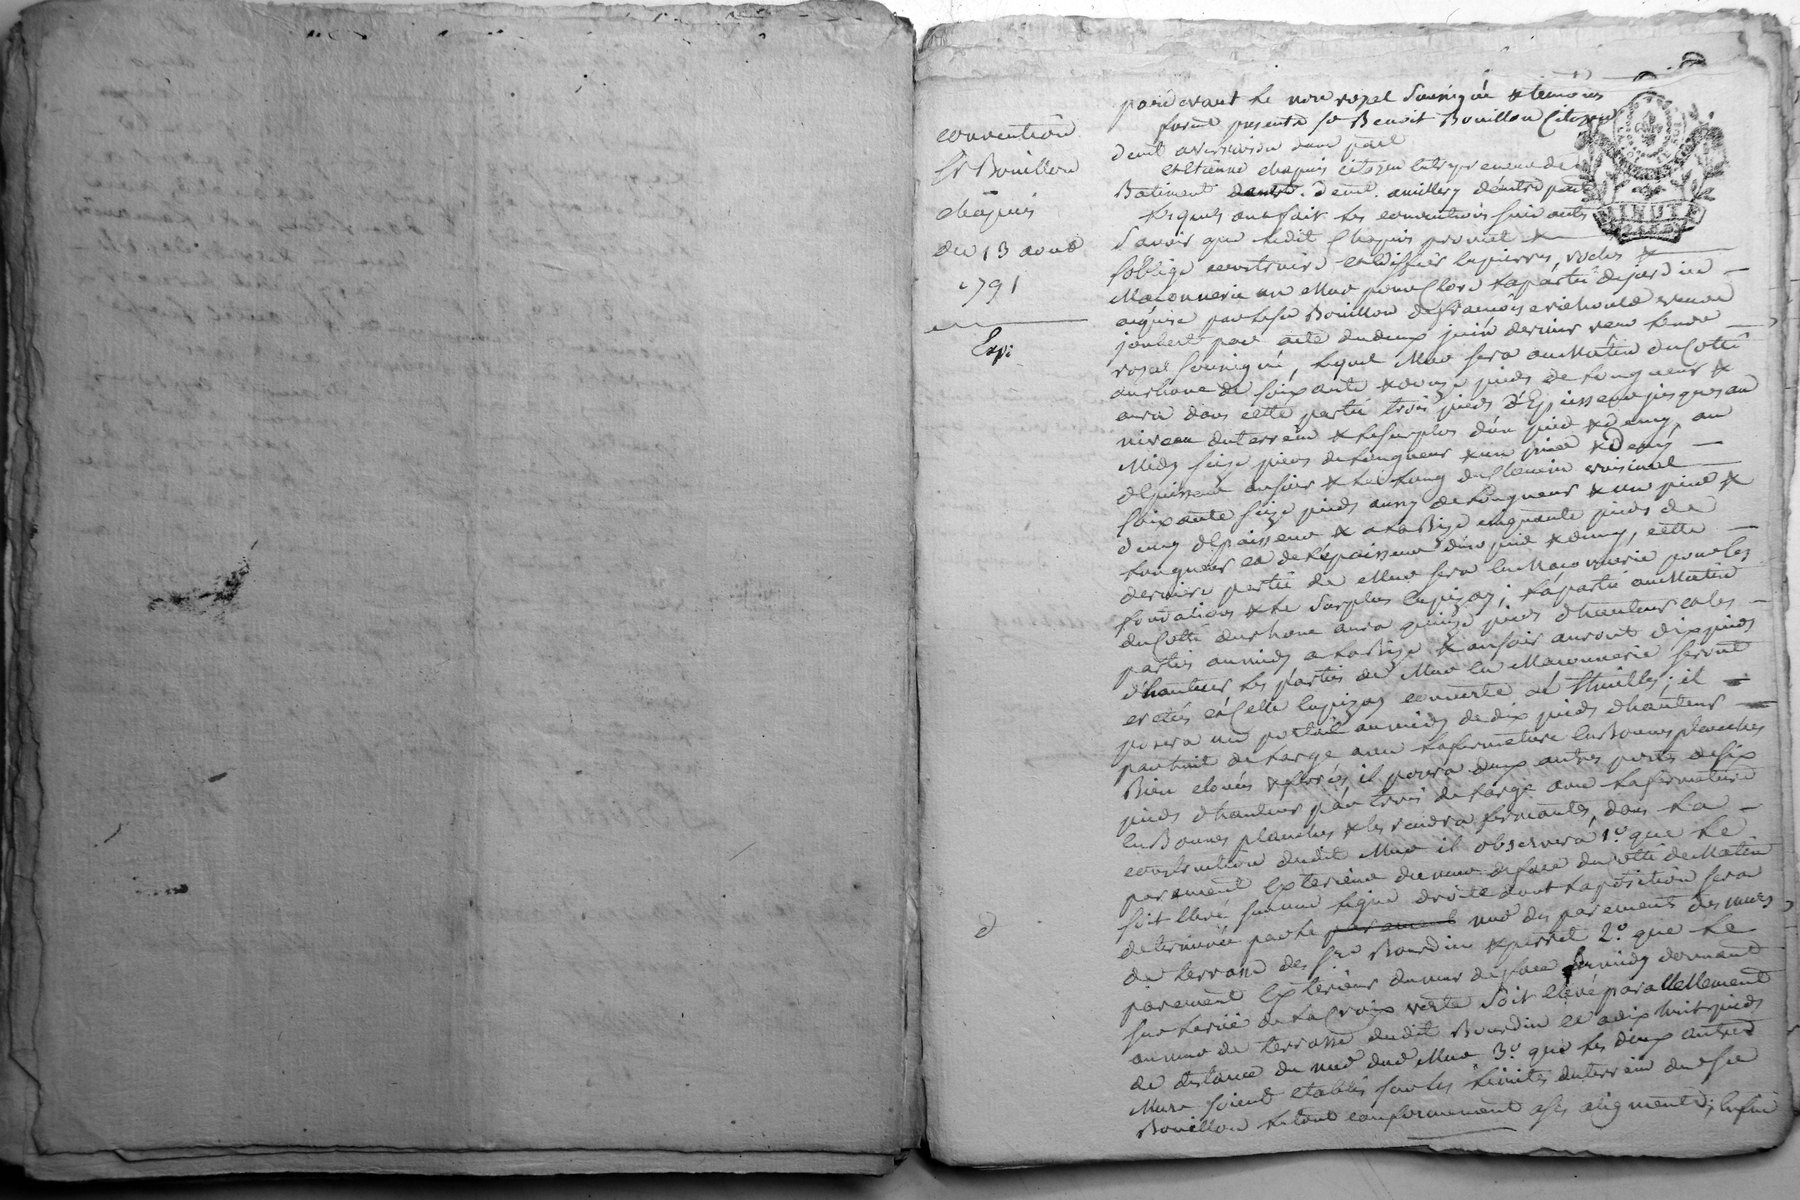 convention
Sr Bouillon
chapuis
du 13 aoust
1791
Exp:
pardevant le nore royal soussigné & temoins
furent presents sr Benoit Bouillon Citoyen
demt a condrieu d'une part
et Etienne chapuis citoyen entrepreneur de
Batiment demt. amillery d'autre part
lesquels ont fait les conventions suivantes
Savoir que ledit Chapuis promet &
s'oblige construire et edifier en pierres,
Maçonnerie un Mur pour Clore la partie de jardin
acquise par le sr Bouillon de françois
joubert par acte du deux juin dernier reçu le nore
royal soussigné, lequel Mur sera au Matin du Cotté
du rhone de soixante & douze pieds de longueur &
aura dans cette partie trois pieds d'Epaisseur jusques au
niveau du terrein & le surplus d'un pied & demy, au
Midy seize pieds de longueur & un pied & demy
d'Epaisseur au soir & le long du Chemin voisinal
soixante seize pieds aussy de longueur & un pied &
demy d'Epaisseur & a la Bize cinquante pieds de
longueur et de l'épaisseur d'un pied & demy, cette
derniere partie de Mur sera en Maçonnerie pour les
fondations & le surplus en pizay; la partie au Matin
du Cotté du rhone aura quinze pieds d'hauteur et les
parties au midy a la Bize & au soir auront dix pieds
d'hauteur les parties de Mur en Maçonnerie seront
et Celle en pizay couverte de thuilles; il
posera un portail au midy de dix pieds d'hauteur
par huit de large avec la fermeture en Bonnes planches
Bien clouées & ferrées, il posera deux autres portes de six
pieds d'hauteur par trois de large avec la fermeture
en Bonnes planches & les rendra fermantes, dans la
construction dudit Mur il observera 1o. que le
parement Exterieur du mur de face du cotté de Matin
soit élevé sur une ligne droite dont la position sera
determinée par le parement nud des parements des murs
de terrasse des srs Bourdin & perret 2o. que le
parement Exterieur du mur de face du midy donnant
sur la rüe de la Croix verte soit elevé parallellement
au mur de terrasse dudit Bourdin et a dix huit pieds
de distance du nud dud Mur 3o. que les deux autres
Murs soient etablis sur les limites du terrein du sr
Bouillon le tout conformement a ses aligments; Enfin
d
MINUT